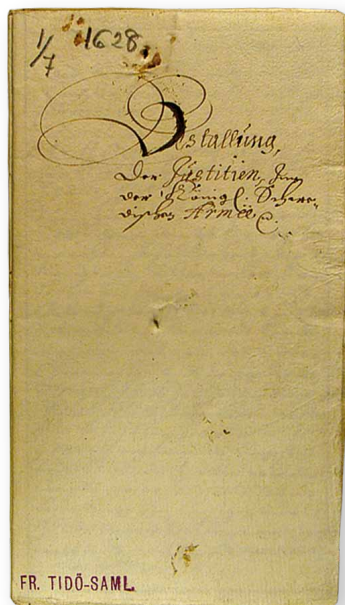 1/7 1628.
Bestallung,
Der Justitien, Inn
der Königl. Schwe-
dischen Armee
FR. TIDÖ-SAML.